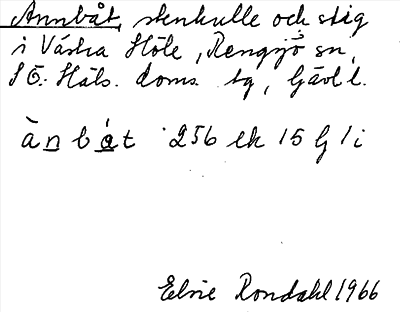 Annbåt, stenkulle och stig
i Västra Höle, Rengsjö sn,
SÖ. Häls. doms. tg, Gävl l.
ànbåt 256 ek 15 G 1 i
Elsie Rondahl 1966